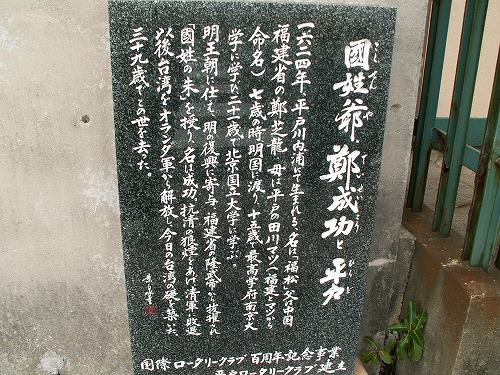 國姓爺 鄭成功と平戸
こくせんや ていせいこう ひらど
一六二四年、平戸川内浦にて生まれる。名は「福松」父は中国
福建省の鄭芝龍、母は平戸の田川マツ(福建とマツから
命名)七歳の時明国に渡り、十五歳で最高学府南京大
学に学び二十一歳で北京国立大学に学ぶ。
明王朝に仕え明の復興に寄与、福建省の隆武帝から抜擢され
「國姓の朱」を授り、名は成功、抗清の狼煙をあげ、清軍に敗退
以後台湾をオランダ軍から解放、今日の台湾の礎を築いた。
三十九歳でこの世を去った。
国際ロータリークラブ百周年記念事業
平戸ロータリークラブ建立